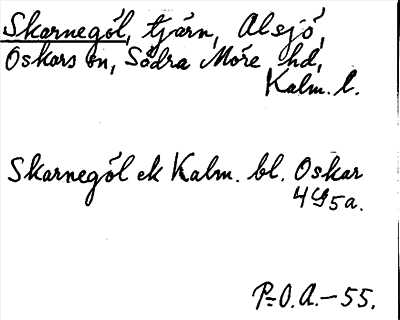 Skarnegöl, tjärn, Alsjö,
Oskars sn, Södra Möre hd,
Kalm. l.
Skarnegöl ek Kalm. bl. Oskar
4G5a.
P-O.A.-55.